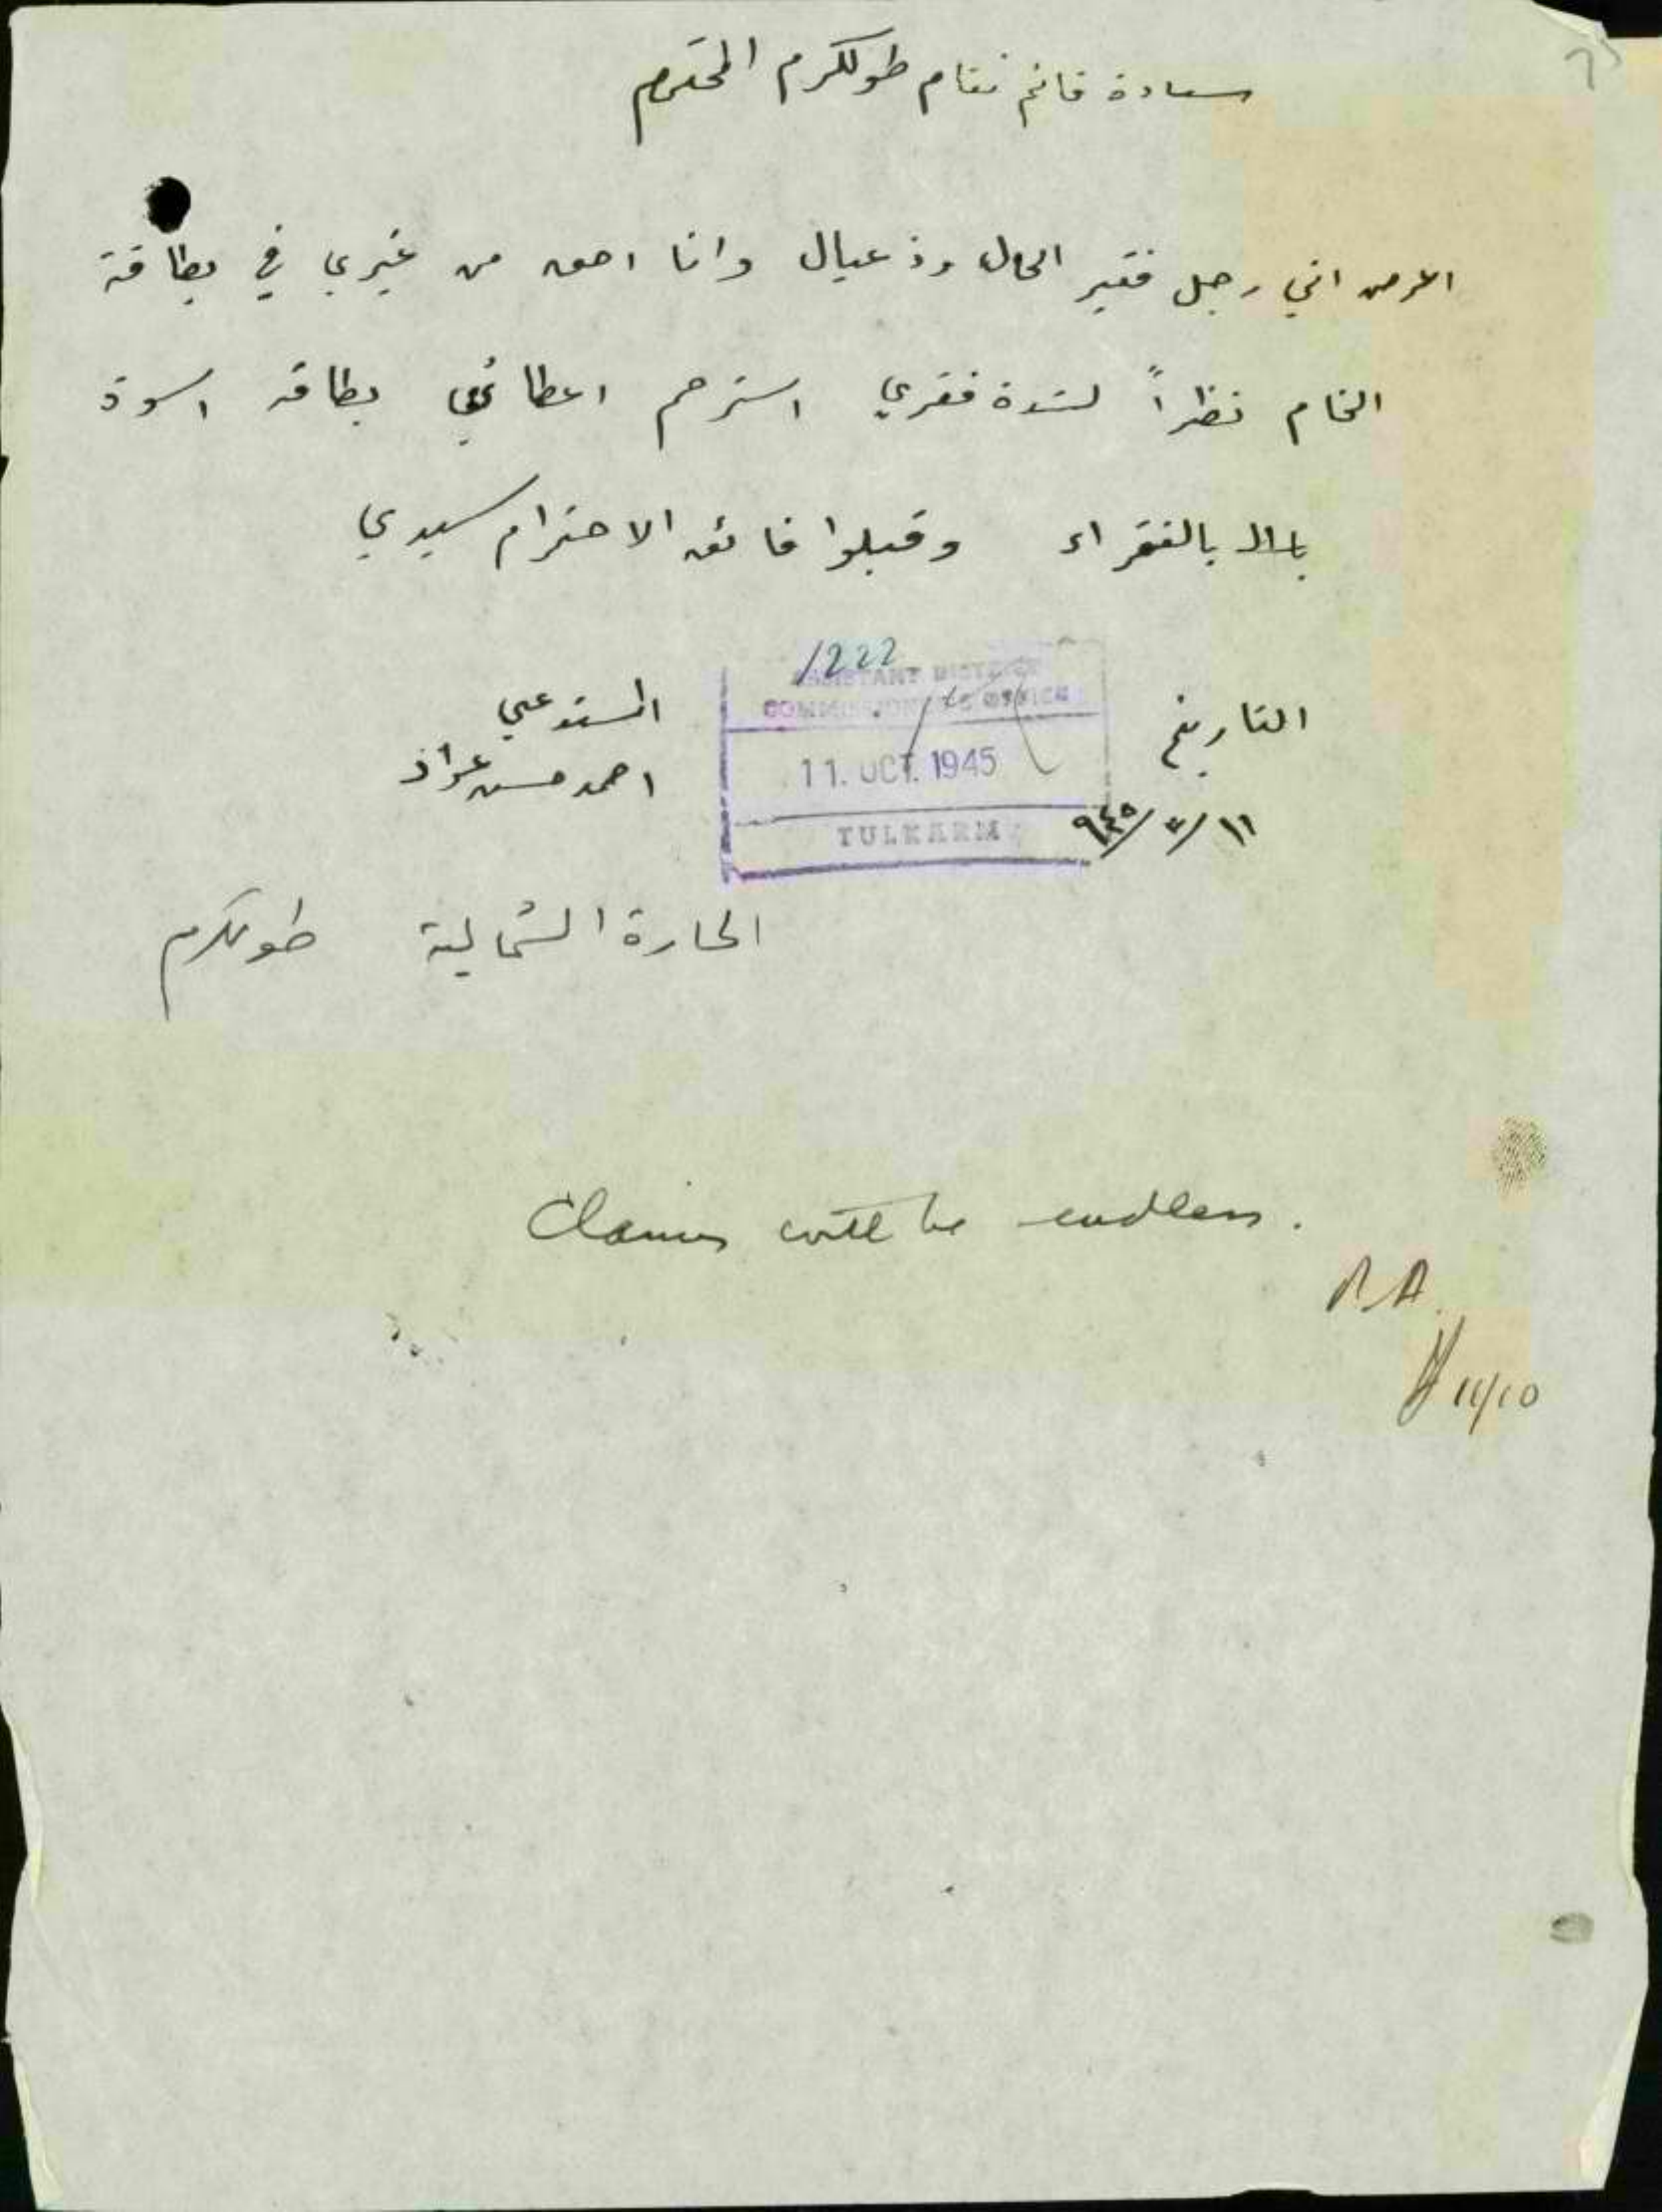 سعادة قائم مقام طولكرم المحترم
اعرض اني رجل فقير الحال وذ عيال وانا احق من غيري في بطاقة
الخام نظراً لشدة فقري استرحم اعطائي بطاقه اسوة
بالفقراء وقبلوا فائق الاحترام سيدي
1222
ASSISTANT DISTRICT
COMMISSIONER'S OFFICE
11. OCT. 1945
TULKARM
التاريخ
المستدعي
احمد حسن
الحارة الشمالية طولكرم
Claims will be endless.
11/10